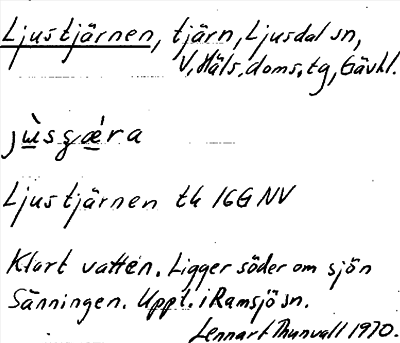 Ljustjärnen, tjärn, Ljusdal sn,
V. Häls. doms. tg, Gävl.
jùsǥǽra
Ljustjärnen tk 16G NV
Klart vatten. Ligger söder om sjön
Sänningen. Uppt. i Ramsjö sn.
Lennart Thunvall 1970.